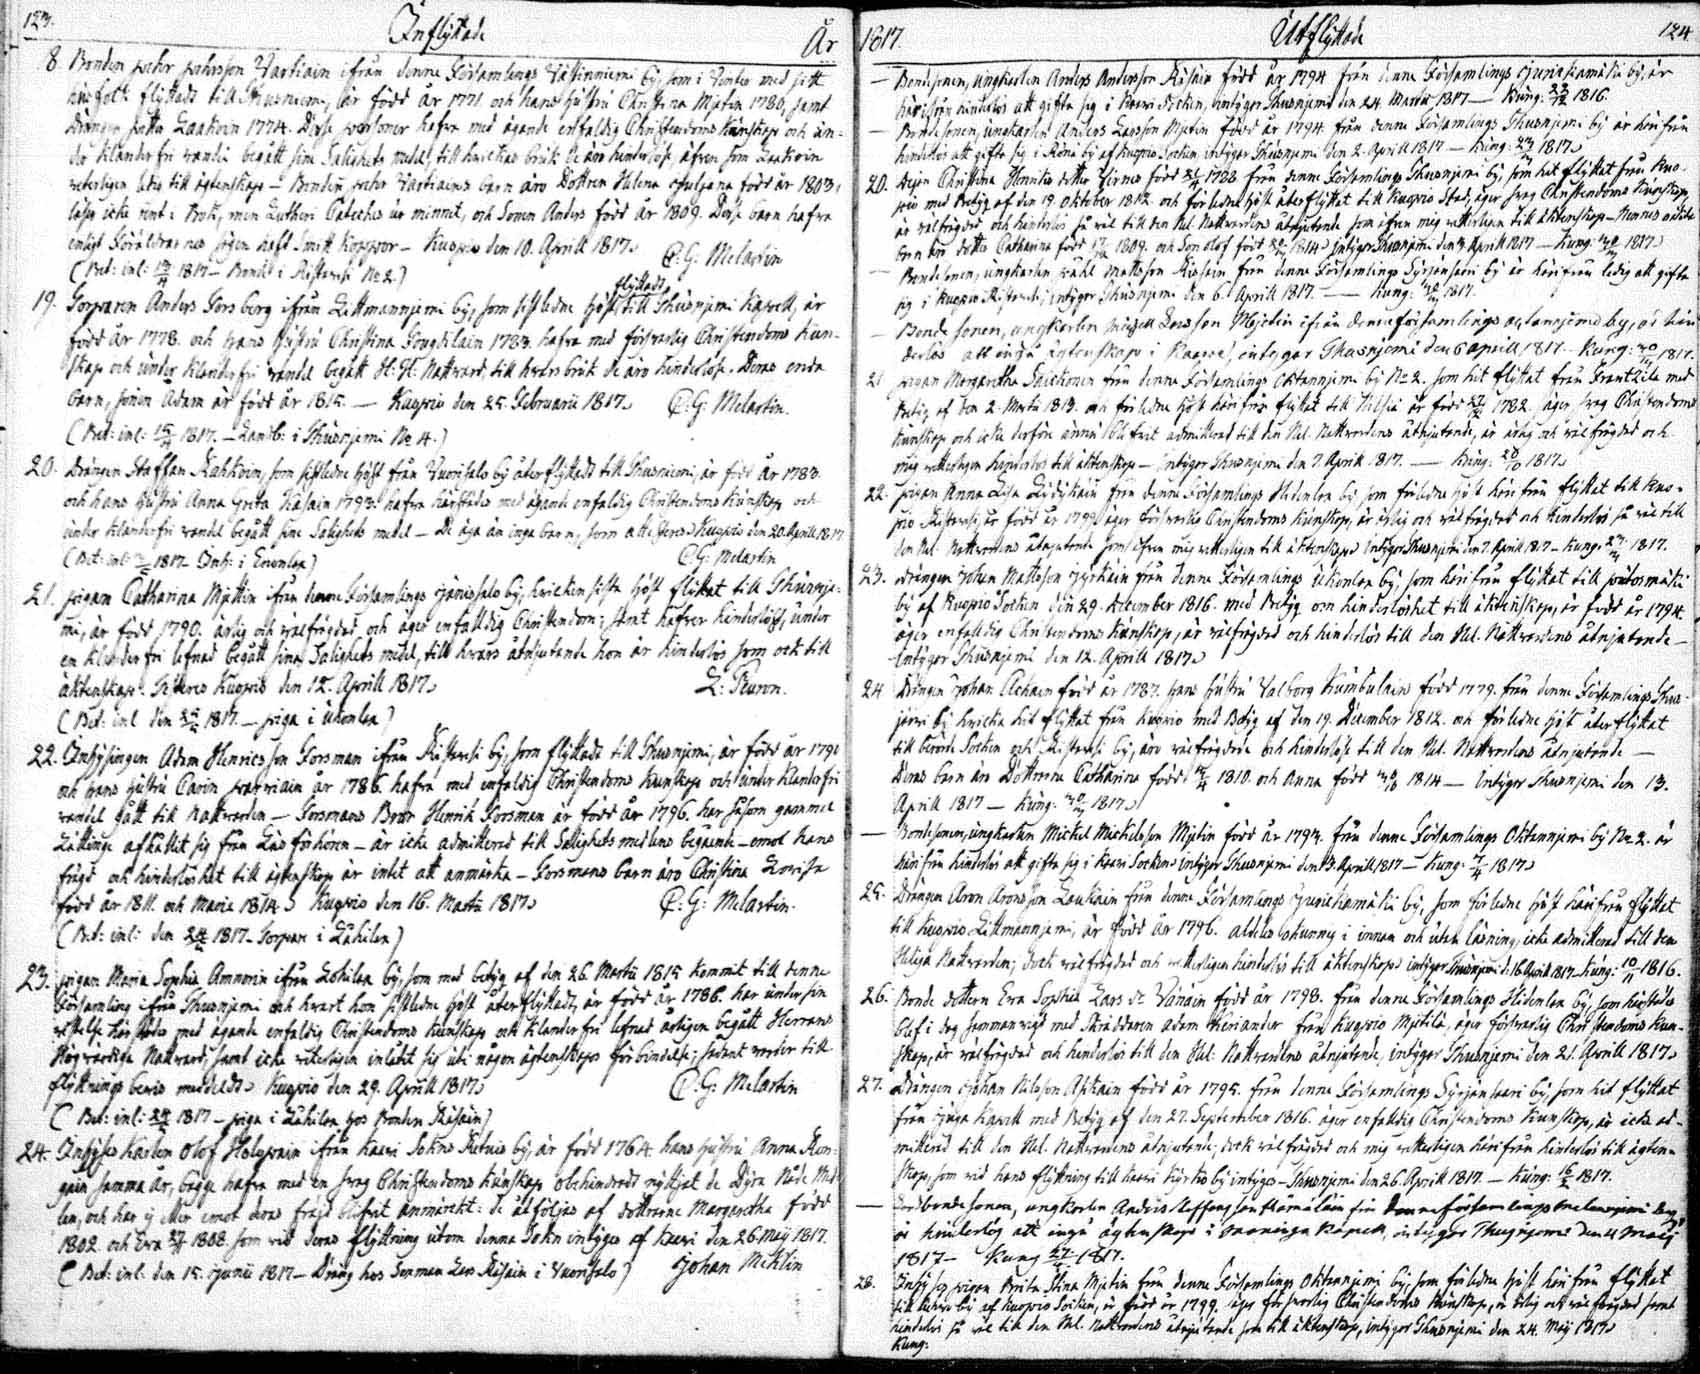 123.
Inflyttade
År
8. Bonden Petter Petersson Vartiain ifrån denne Församlings Västinniemi by, som i Vinter med sitt
husfolk flyttade till Thusniemi, är född år 1771 och hans hustru Christina Mjetin 1780, samt
Drängen Laakoin 1774. Desse personer hafva med ägande enfaldig Christendoms Kunskap och un-
der klanderfri vandel begått sine Salighets medel, till hvilkas bruk de äro hinderlöse, äfven som Laakoin
veterligen ledig till ägtenskap – Bonden Petter Vartiains barn äro Dottren Helena född år 1803,
läser icke rent i Bok, men Lutheri Cateches ur minnet, och Sonen Anders född år 1809. Desse barn hafva
enligt Föräldrarnes sägen haft Smitt Koppor – Kuopio den 10. Aprill 1817.
C: G: Melartin
(Bet: inl: 1817 – Bonde i Ristavesi No 2.)
19. Torparen Anders Forsberg ifrån Littmanniemi by, som sistledne höst flyttade till Thusniemi Kapell, är
född år 1778. och hans hustru Christina 1783. hafva med försvarlig Christendoms Kun-
skap och under klanderfri vandel begått H: H: Nattvard, till hvars bruk de äro hinderlöse. Deras enda
barn, sonen Adam är född år 1815. – Kuopio den 25. Februarii 1817.
C: G: Melartin.
(Bet: inl: 1817. – Landb: i Thusniemi No 4.)
20. Drängen Staffan Kakkoin, som sistledne höst från Vuorisalo by återflyttade till Thusniemi, är född år 1783.
och hans hustru Anna Greta Räsäin 1793. hafva härstädes med ägande enfaldig Christendoms Kunskap och
under klanderfri vandel begått sine Salighets medel – De äga än inga barn, som attesteras Kuopio den 20. Aprill 1817
C: G: Melartin
(Bet: inl: 1817 – Inh: i Enonlax)
21. Pigan Catharina Mjettin ifrån denne Församlings Jänissalo by, hvilken sista höst flyttat till Thusnie-
mi, är född 1790. ärlig och välfrägdad och äger enfalldig Christendom; samt hafver hinderlöst, under
en klanderfri lefnad begått sina Salighets medel, till hvars åtnjutande hon är hinderlös som ock till
äktenskap. Kuopio den 12. Aprill 1817.
Z: Peuron.
(Bet: inl den 1817. – piga i Ukonlax)
22. Inhysingen Adam Henricsson Forsman ifrån Ristavesi by, som flyttade till Thusniemi, är född år 1791
och hans hustru Carin 1786. hafva med enfaldig Christendoms Kunskap och under klanderfri
vandel gått till Nattvarden – Forsmans Bror Henrik Forsman är född år 1796, har såsom gammal
afhållit sig från Läsförhören – är icke admitterad till Salighets medlens begående – emot hans
frägd och hinderlöshet till ägtenskap är intet att anmärka – Forsmans barn äro Christina Lovisa
född år 1811. och Maria 1814. Kuopio den 16. Martii 1817.
C: G: Melartin.
(Bet: inl: den 1817 – Torpare i)
23. Pigan Maria Sophia Ammorin ifrån by, som med betyg af den 26. Martii 1815 kommit till denne
Församling ifrån Thusniemi och hvart hon sistledne höst återflyttade, är född år 1786. har under sin
vistelse härstädes med ägande enfaldig Christendoms kunskap och klanderfri lefnad årligen begått Herrans
Högvärdiga Nattvard, samt icke veterligen inlåtit sig uti någon ägtenskaps förbindelse; sådant varder till
flyttnings bevis meddelt. Kuopio den 29. Aprill 1817.
C: G: Melartin
(Bet: inl: 1817 – piga i hos Bonden Räsäin)
24. Inhyses Karlen Olof Holopain ifrån Kaavi Sokns by, är född 1764. hans hustru Anna
samma år, begge hafva med en svag Christendoms kunskap obehindrade nyttjat de Dyra Nåde Med-
len, och har ej eller emot deras frägd blifvit anmärkt: de åtföljas af döttrarne Margaretha född
1802. och Eva 1808. som vid deras flyttning utom denna Sokn intygas af Kaavi den 26. Maij 1817.
Johan Meklin
(Bet: inl: den 15. Junii 1817 – Dräng hos Lars Räsäin i Vuorisalo)
1817.
Utflyttade
124.
– Bondesonen, ungkarlen Anders Andersson Räsäin född år 1794 från denne Församlings Juurickamäki by, är
härifrån hinderlös att gifta sig i Kaavi Socken, intygar Thusniemi den 24. Martii 1817 – Kung: 1816.
– Bondesonen, ungkarlen Anders Larsson Mjetin född år 1794. från denne Församlings Thusniemi by är härifrån
hinderlös att gifta sig i by af Kuopio Socken intygar Thusniemi den 2. Aprill 1817 – Kung: 1817.
20. Pigan Christina Henrics dotter född 1788 från denne Församlings Thusniemi by, som hit flyttat från Kuo-
pio med Betyg af den 19. Oktober 1812. och förledne höst återflyttat till Kuopio Stad, äger svag Christendoms Kunskap,
är välfrägdad och hinderlös så väl till den Hel. Nattvardens åtnjutande som ifrån mig veterligen till äktenskap – Hennes oäkta
barn äro dotter Catharina född 1809. och Son Olof född 1814. intygar Thusniemi den 4 Aprill 1817 – Kung: 1817.
– Bondesonen, ungkarlen Påhl Mattsson Räsäin från denne Församlings Syrjänsaari by är härifrån ledig att gifta
sig i Kuopio Ristavesi; intygar Thusniemi den 6. Aprill 1817. – Kung: 1817.
– Bonde sonen, ungkarlen Michell Larsson Mjetin ifrån denne församlings by, är hin-
derlös att ingå ägtenskap i Kaavi, intygar Thusniemi den 6 aprill 1817. Kung: 1817.
21 Pigan Margaretha Taickonen från denne Församlings Oktanniemi by No 2. som hit flyttat från Frantzila med
Betyg af den 2. Martii 1813. och förledne höst härifrån flyttat till är född 1782. äger svag Christendoms
Kunskap och icke derföre ännu blifvit admitterad till den Hel. Nattvardens åtnjutande, är ärlig och välfrägdad och
mig veterligen hinderlös till äktenskap – intygar Thusniemi den 7. Aprill 1817. – Kung: 1817.
22. Pigan Anna Lisa från denne Församlings Hidenlax by som förledne höst härifrån flyttat till Kuo-
pio Ristavesi, är född år 1799. äger försvarlig Christendoms Kunskap, är ärlig och välfrägdad och hinderlös så väl till
den Hel. Nattvardens åtnjutande som ifrån mig veterligen till äktenskap. Intygar Thusniemi den 7. Aprill 1817 – Kung: 1817.
23. Drängen Johan Mattsson från denne Församlings Ukonlax by, som härifrån flyttat till
by af Kuopio Socken den 29. December 1816. med Betyg om hinderlöshet till äktenskap, är född år 1794.
äger enfalldig Christendoms Kunskap, är välfrägdad och hinderlös till den Hel. Nattvardens åtnjutande –
intygar Thusniemi den 12. Aprill 1817.
24 Drängen Johan Ackain född år 1787. hans hustru Valborg född 1779. från denne Församlings Thus-
niemi by hvilka hit flyttat från Kuopio med Betyg af den 19. December 1812. och förledne höst återflyttat
till berörde Socken och Ristavesi by, äro välfrägdade och hinderlöse till den Hel. Nattvardens åtnjutande –
Deras barn äro Döttrarne Catharina född 1810. och Anna född 1814 – Intygar Thusniemi den 13.
Aprill 1817 – Kung: 1817.
– Bondesonen, ungkarlen Mickel Mickelsson Mjetin född år 1794. från denne Församlings Oktanniemi by No 2. är
härifrån hinderlös att gifta sig i Kaavi Socken, intygar Thusniemi den 13. Aprill 1817 – Kung: 1817.
25. Drängen Aron Aronsson Laukain från denne Församlings Juurickamäki by, som förledne höst härifrån flyttat
till Kuopio Littmanniemi, är född år 1796. aldeles okunnig i innan och utan läsning, icke admitterad till den
Heliga Nattvarden; dock välfrägdad och veterligen hinderlös till äktenskap. intygar Thusniemi d. 16 Aprill 1817. Kung: 1816.
26. Bonde dottern Eva Sophia Lars dr Vänäin född år 1798. från denne Församlings Hidenlax by, som härstädes
blef i dag sammanvigd med Skräddaren Adam från Kuopio Mjetilä, äger försvarlig Christendoms Kun-
skap, är välfrägdad och hinderlös till den Hel: Nattvardens åtnjutande, intygar Thusniemi den 21. Aprill 1817.
27. Drängen Johan Nilsson född år 1795. från denne Församlings Syrjänsaari by, som hit flyttat
från Kapell med Betyg af den 27. September 1816. äger enfalldig Christendoms Kunskap, är icke ad-
mitterad till den Hel. Nattvardens åtnjutande; dock välfrägdad och mig veterligen härifrån hinderlös till ägten-
skap, som vid hans flyttning till Kaavi Kyrko by intygas – Thusniemi den 26. Aprill 1817. – Kung: 1817.
– Bondesonen, ungkarlen Anders Steffansson Hämäläin från denne församlings by
är hinderlös att ingå ägtenskap i Kapell, intygar Thusniemi den 4 Maij
1817 – Kung 1817.
28. Inhyses pigan Brita Stina Mjetin från denne Församlings Oktanniemi by, som förledne höst härifrån flyttat
till by af Kuopio Socken, är född år 1799. äger försvarlig Christendoms Kunskap, är ärlig och välfrägdad samt
hinderlös så väl till den Hel. Nattvardens åtnjutande som till äktenskap, intygar Thusniemi den 24. Maij 1817.
Kung: